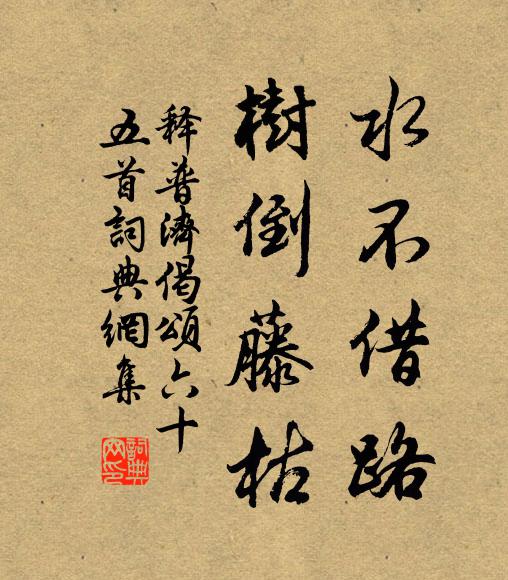 水不借路
樹倒藤枯
释普濟偈頌六十
五首詞典網集
詞典网印